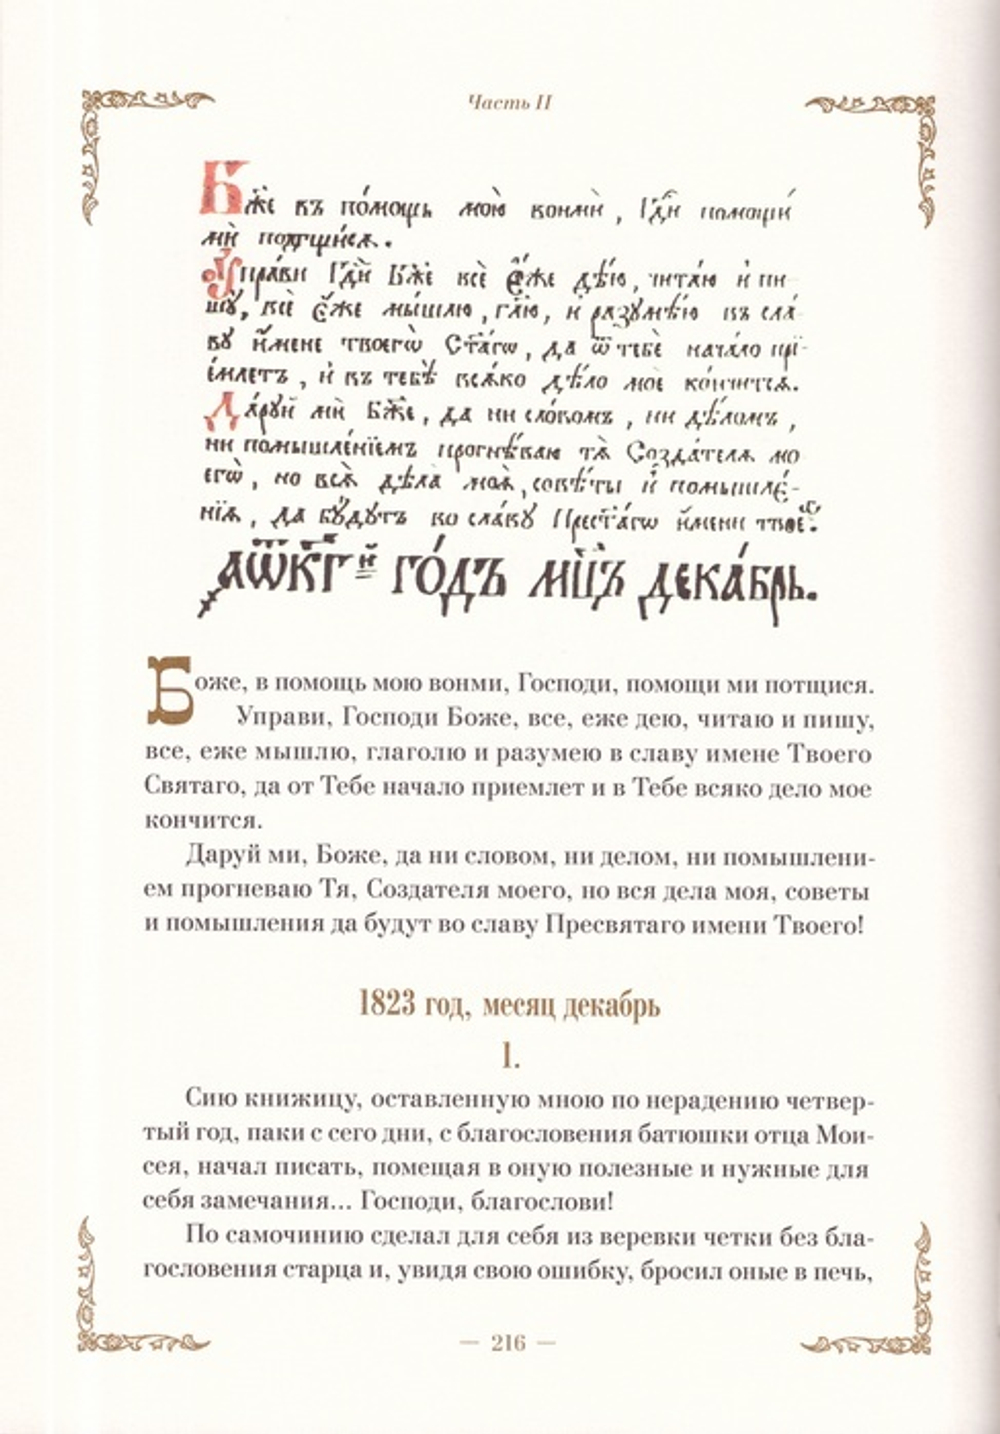 Часть II
Бж҃е въ по́мощь мою̀ вонмѝ, Гд҃и помощи́
мѝ потщи́сѧ.
Оу҆пра́ви Гд҃и Бж҃е всѐ є҆́же дѣ́ю, чита́ю и҆ пи-
шꙋ̀, всѐ є҆́же мы́шлю, гл҃ю, и҆ разꙋмѣ́ю въ сла́-
вꙋ и҆́мене твоегѡ̀ Ст҃а́гѡ, да ѿ тебѐ нача́ло прї-
е́млетъ, и҆ въ тебѣ̀ всѧ́ко дѣ́ло моѐ ко́нчитсѧ.
Да́рꙋй мѝ Бж҃е, да ни сло́вомъ, ни дѣ́ломъ,
ни помышле́нїемъ прогнѣ́ваю тѧ̀ Созда́телѧ мо
егѡ̀, но всѧ̀ дѣла̀ моѧ̀, совѣ́ты и҆ помышле́-
нїѧ, да бꙋ́дꙋтъ во сла́вꙋ Прест҃а́гѡ и҆́мени твоегѡ̀.
҂аѿкг҃й го́дъ мц҃ъ дека́брь.
Боже, в помощь мою вонми, Господи, помощи ми потщися.
Управи, Господи Боже, все, еже дею, читаю и пишу,
все, еже мышлю, глаголю и разумею в славу имене Твоего
Святаго, да от Тебе начало приемлет и в Тебе всяко дело мое
кончится.
Даруй ми, Боже, да ни словом, ни делом, ни помышлени-
ем прогневаю Тя, Создателя моего, но вся дела моя, советы
и помышления да будут во славу Пресвятаго имени Твоего!
1823 год, месяц декабрь
1.
Сию книжицу, оставленную мною по нерадению четвер-
тый год, паки с сего дни, с благословения батюшки отца Мои-
сея, начал писать, помещая в оную полезные и нужные для
себя замечания... Господи, благослови!
По самочинию сделал для себя из веревки четки без бла-
гословения старца и, увидя свою ошибку, бросил оные в печь,
— 216 —